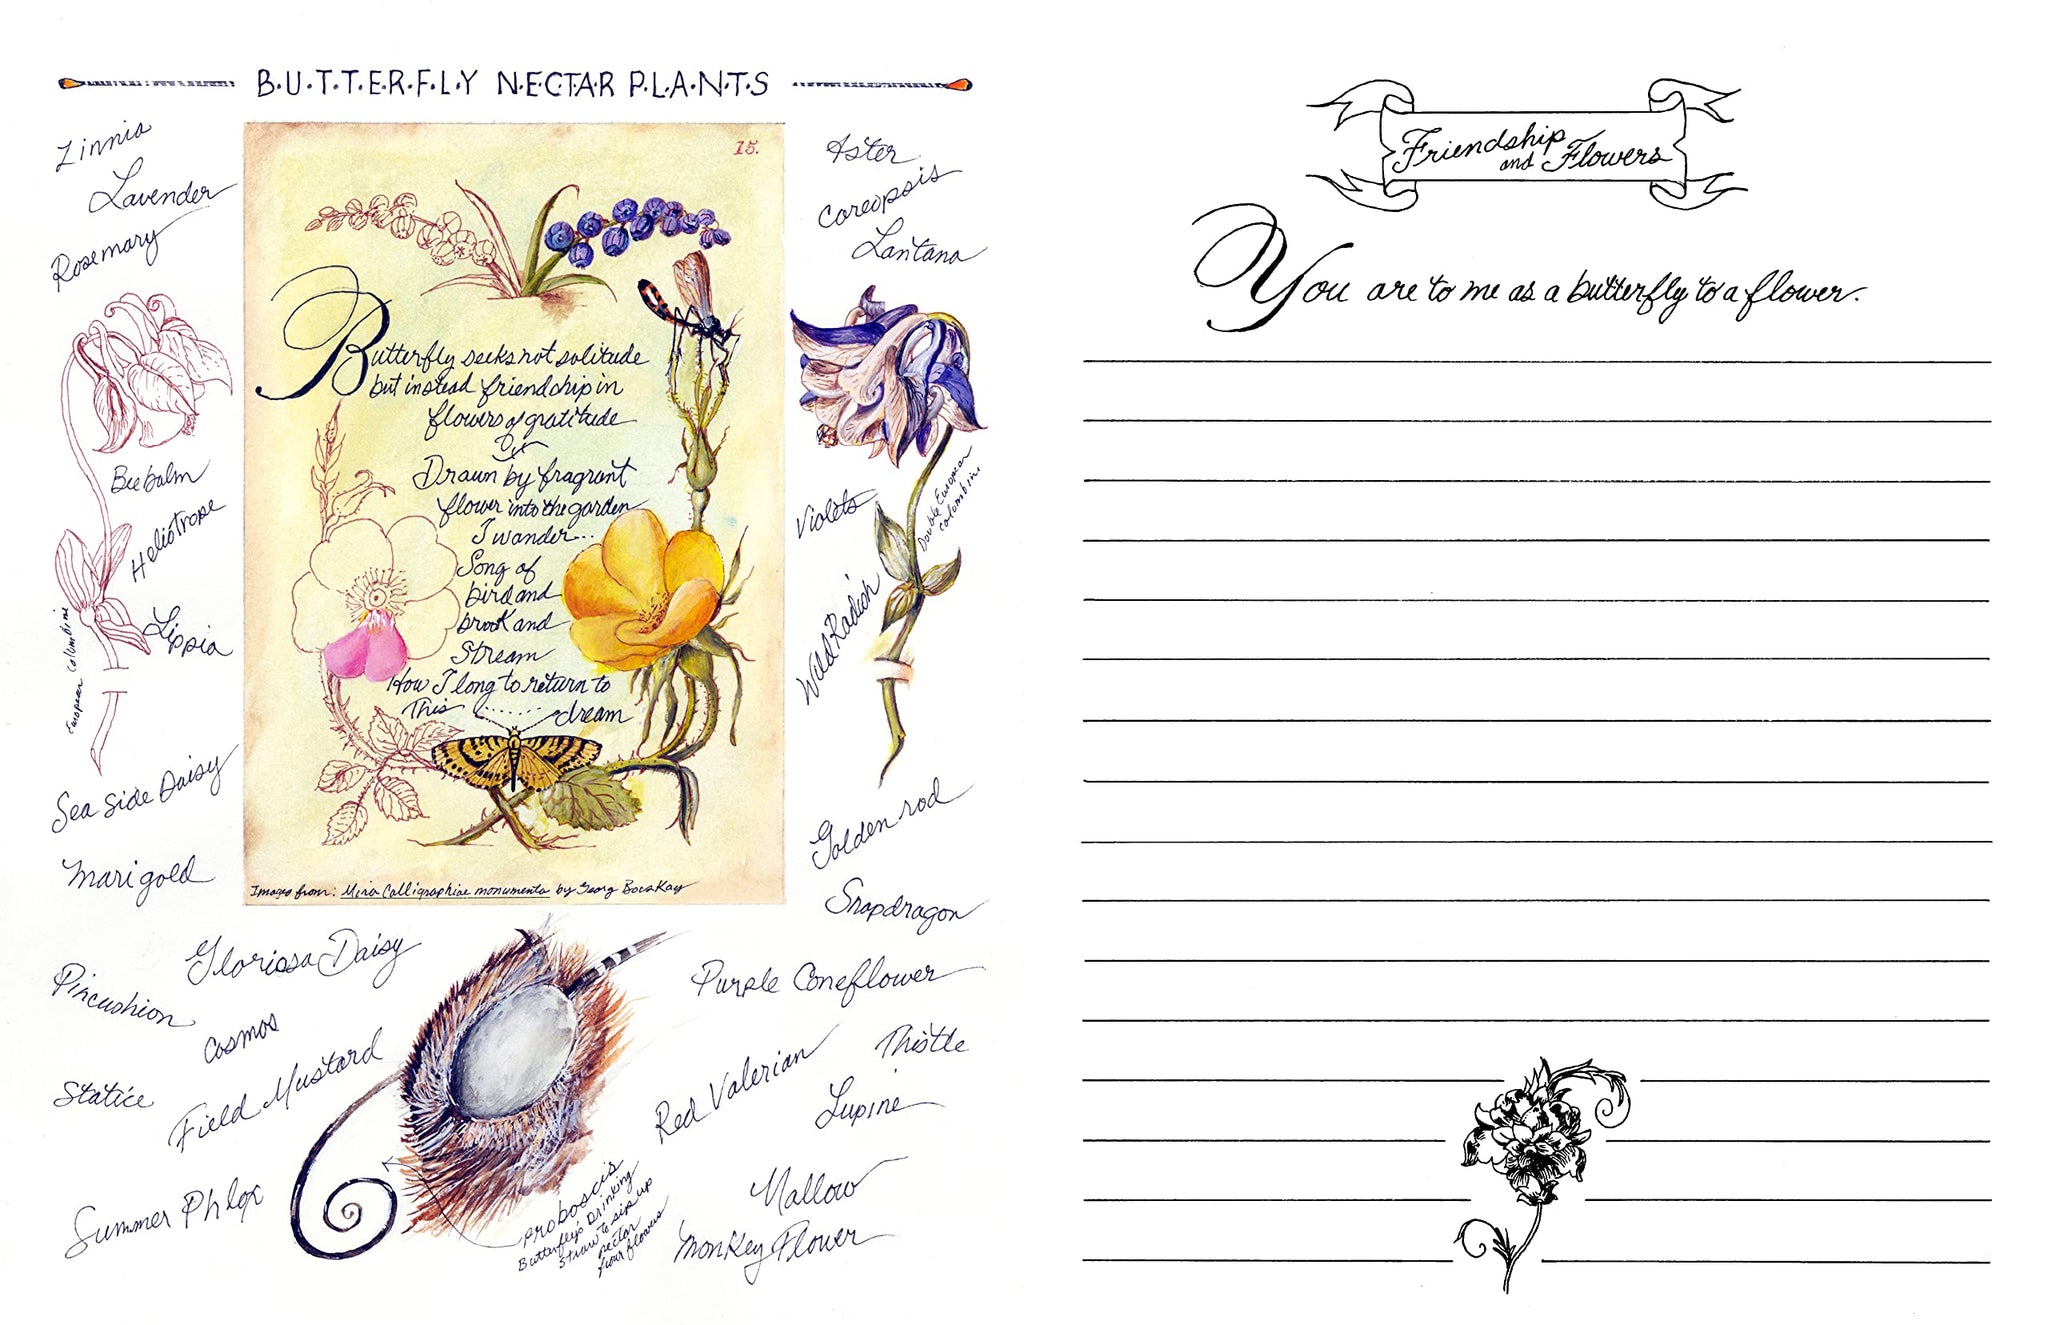 B·U·T·T·E·R·F·L·Y N·E·C·T·A·R P·L·A·N·T·S
Zinnia
Lavender
Rosemary
Beebalm
Heliotrope
Lippia
European Columbine
Sea Side Daisy
Marigold
15.
Butterfly seeks not solitude
but instead friendship in
flowers of gratitude
Drawn by fragrant
flower into the garden
I wander...
Song of
bird and
brook and
Stream
How I long to return to
This ....... dream
Images from: Mira Calligraphiae monumenta by Georg Bocskay
Aster
Coreopsis
Lantana
Double European
Columbine
Violets
Wild Radish
Golden rod
Snapdragon
Gloriosa Daisy
Pincushion
Cosmos
Statice
Field Mustard
Summer Phlox
Purple Coneflower
Thistle
Red Valerian
Lupine
Mallow
Monkey Flower
Proboscis
Butterfly's Drinking
Straw to sip up
nectar
from flowers
Friendship
and Flowers
You are to me as a butterfly to a flower.